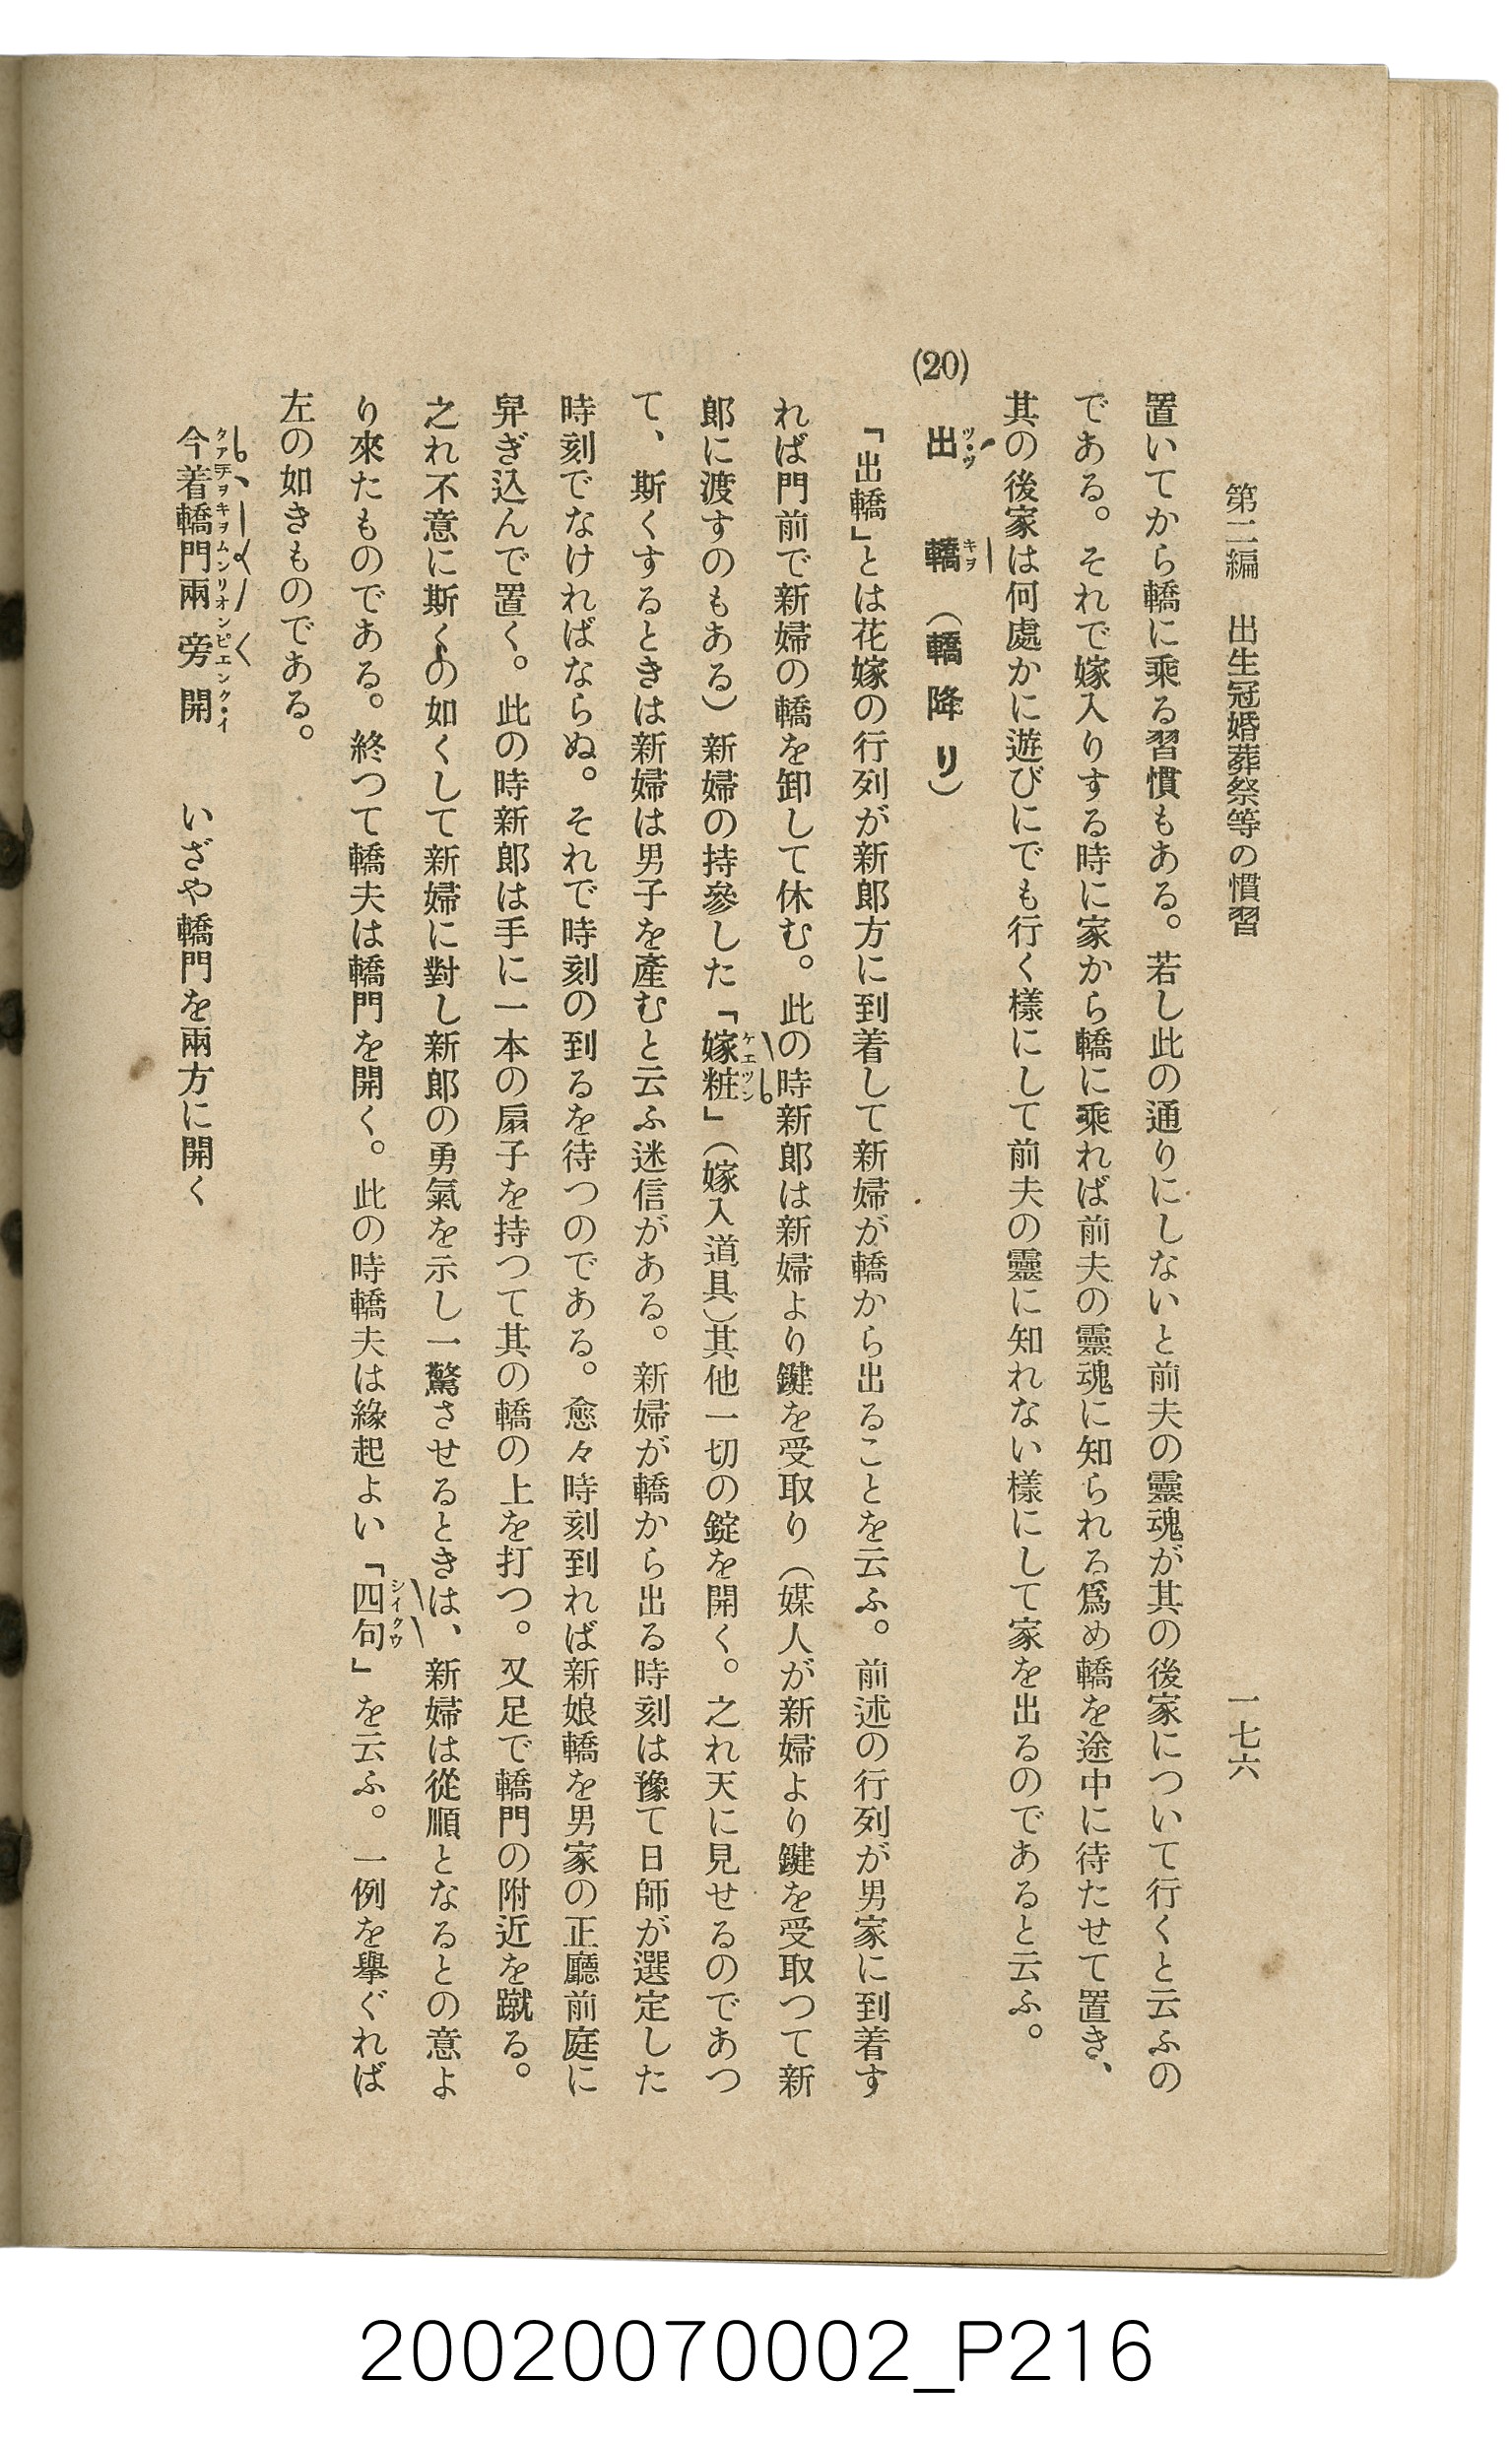 第二編　出生冠婚葬祭等の慣習　一七六
置いてから轎に乘る習慣もある。若し此の通りにしないと前夫の靈魂が其の後家について行くと云ふの
である。それで嫁入りする時に家から轎に乘れば前夫の靈魂に知られる爲め轎を途中に待たせて置き、
其の後家は何處かに遊びにでも行く樣にして前夫の靈に知れない樣にして家を出るのであると云ふ。
(20)　出　轎　（轎降り）
「出轎」とは花嫁の行列が新郎方に到着して新婦が轎から出ることを云ふ。前述の行列が男家に到着す
れば門前で新婦の轎を卸して休む。此の時新郎は新婦より鍵を受取り（媒人が新婦より鍵を受取つて新
郎に渡すのもある）新婦の持參した「嫁粧」（嫁入道具）其他一切の錠を開く。之れ天に見せるのであつ
て、斯くするときは新婦は男子を產むと云ふ迷信がある。新婦が轎から出る時刻は豫て日師が選定した
時刻でなければならぬ。それで時刻の到るを待つのである。愈々時刻到れば新娘轎を男家の正廳前庭に
舁ぎ込んで置く。此の時新郎は手に一本の扇子を持つて其の轎の上を打つ。又足で轎門の附近を蹴る。
之れ不意に斯くの如くして新婦に對し新郎の勇氣を示し一驚させるときは、新婦は從順となるとの意よ
り來たものである。終つて轎夫は轎門を開く。此の時轎夫は緣起よい「四句」を云ふ。一例を擧ぐれば
左の如きものである。
今着轎門兩旁開　いざや轎門を兩方に開く
20020070002_P216